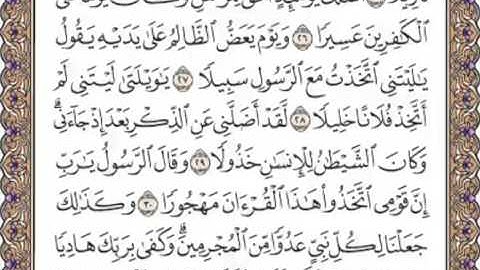 الْكَٰفِرِينَ عَسِيرًا ٢٦ وَيَوْمَ يَعَضُّ الظَّالِمُ عَلَىٰ يَدَيْهِ يَقُولُ
يَٰلَيْتَنِى اتَّخَذْتُ مَعَ الرَّسُولِ سَبِيلًا ٢٧ يَٰوَيْلَتَىٰ لَيْتَنِى لَمْ
أَتَّخِذْ فُلَانًا خَلِيلًا ٢٨ لَّقَدْ أَضَلَّنِى عَنِ الذِّكْرِ بَعْدَ إِذْ جَآءَنِى ۗ
وَكَانَ الشَّيْطَٰنُ لِلْإِنسَٰنِ خَذُولًا ٢٩ وَقَالَ الرَّسُولُ يَٰرَبِّ
إِنَّ قَوْمِى اتَّخَذُوا۟ هَٰذَا الْقُرْءَانَ مَهْجُورًا ٣٠ وَكَذَٰلِكَ
جَعَلْنَا لِكُلِّ نَبِىٍّ عَدُوًّا مِّنَ الْمُجْرِمِينَ ۗ وَكَفَىٰ بِرَبِّكَ هَادِيًا